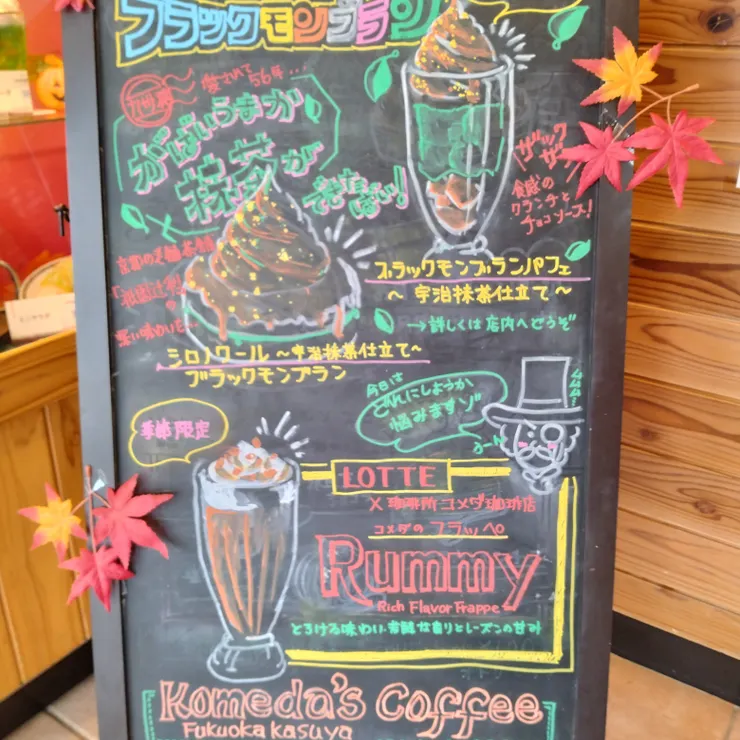 ブラックモンブラン
愛されて56年...
がばいうまか
抹茶が
できたばい!
ザック
ザク
食感の
クランチと
チョコソース!
の
深い味わいを...
ブラックモンブランパフェ
~宇治抹茶仕立て~
→詳しくは店内へどうぞ
シロノワール ~宇治抹茶仕立て~
ブラックモンブラン
今日は
どれにしようか
悩みますゾ
うーん
ムムム...
季節限定
LOTTE
X 珈琲所コメダ珈琲店
コメダのフラッペ
Rummy
Rich Flavor Frappe
とろける味わい芳醇な香りとレーズンの甘み
Komeda's Coffee
Fukuoka Kasuya